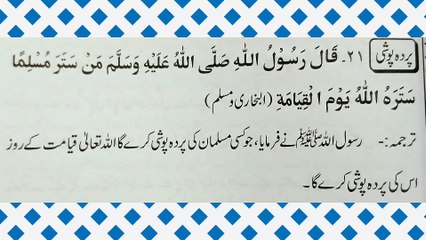 پردہ پوشی ۲۱۔ قَالَ رَسُوْلُ اللهِ صَلَّى اللهُ عَلَيْهِ وَسَلَّمَ مَنْ سَتَرَ مُسْلِمًا
سَتَرَهُ اللهُ يَوْمَ الْقِيَامَةِ (البخاری و مسلم)
ترجمہ:- رسول اللہ ﷺ نے فرمایا، جو کسی مسلمان کی پردہ پوشی کرے گا اللہ تعالیٰ قیامت کے روز
اس کی پردہ پوشی کرے گا۔